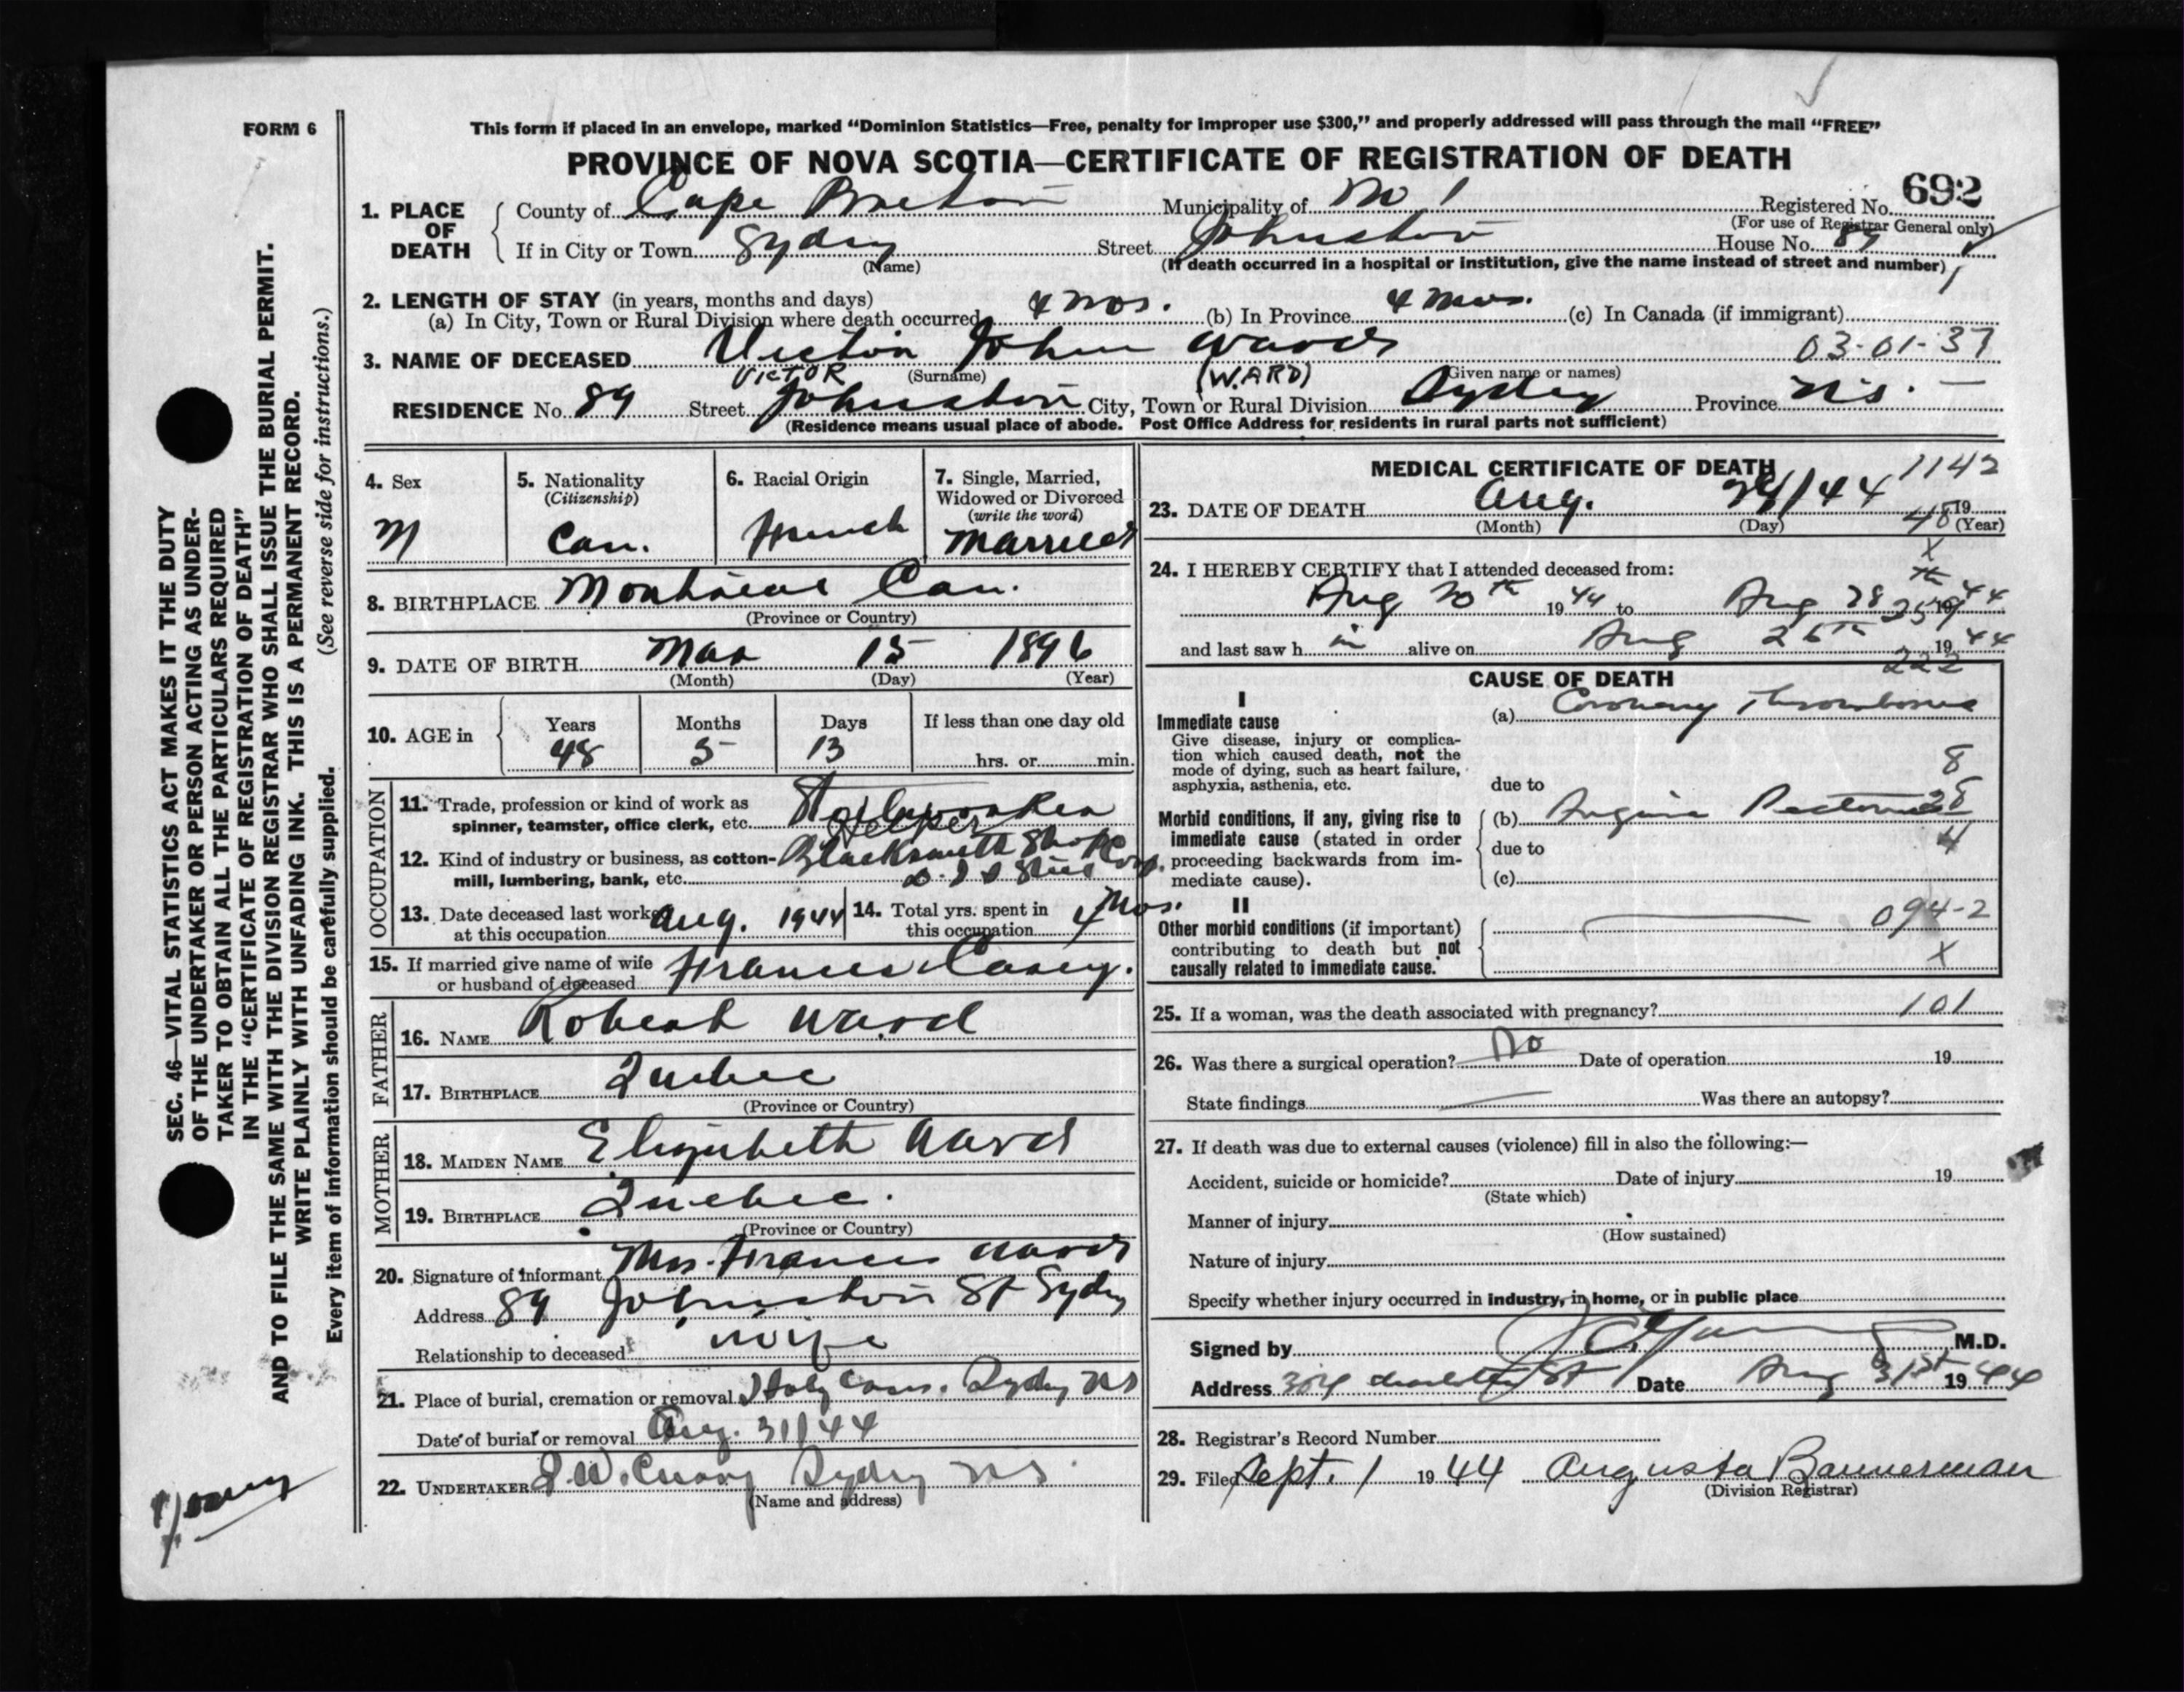 FORM 6
This form if placed in an envelope, marked “Dominion Statistics—Free, penalty for improper use $300,” and properly addressed will pass through the mail “FREE”
PROVINCE OF NOVA SCOTIA—CERTIFICATE OF REGISTRATION OF DEATH
692
1. PLACE OF DEATH { County of Cape Breton Municipality of No 1 Registered No.
(For use of Registrar General only)
If in City or Town Sydney Street Johnston House No. 89
(Name) (If death occurred in a hospital or institution, give the name instead of street and number)
2. LENGTH OF STAY (in years, months and days)
(a) In City, Town or Rural Division where death occurred 4 mos. (b) In Province 4 mos. (c) In Canada (if immigrant)
3. NAME OF DECEASED Victor John Ward 03-01-37
VICTOR (Surname) (WARD) Given name or names)
RESIDENCE No. 89 Street Johnston City, Town or Rural Division Sydney Province N.S. —
(Residence means usual place of abode. Post Office Address for residents in rural parts not sufficient)
4. Sex
M
5. Nationality
(Citizenship)
Can.
6. Racial Origin
French
7. Single, Married,
Widowed or Divorced
(write the word)
Married
8. BIRTHPLACE Montreal Can.
(Province or Country)
9. DATE OF BIRTH Mar 15 1896
(Month) (Day) (Year)
10. AGE in { Years Months Days If less than one day old
48 5 13 hrs. or min.
OCCUPATION
11. Trade, profession or kind of work as
spinner, teamster, office clerk, etc.
Helper
12. Kind of industry or business, as cotton-
mill, lumbering, bank, etc. Blacksmith Shop
D. I & Steel Corp.
13. Date deceased last worked
at this occupation Aug. 1944
14. Total yrs. spent in
this occupation 4 Mos.
15. If married give name of wife
or husband of deceased Frances Casey.
FATHER
16. NAME Robert Ward
17. BIRTHPLACE Quebec
(Province or Country)
MOTHER
18. MAIDEN NAME Elizabeth Ward
19. BIRTHPLACE Quebec.
(Province or Country)
20. Signature of informant Mrs. Frances Ward
Address 89 Johnston St Sydney
Relationship to deceased wife
21. Place of burial, cremation or removal Holy Cross. Sydney NS
Date of burial or removal Aug. 31/44
22. UNDERTAKER Sydney NS
(Name and address)
MEDICAL CERTIFICATE OF DEATH
1142
23. DATE OF DEATH Aug. /44 19
(Month) (Day) 48 (Year)
X
24. I HEREBY CERTIFY that I attended deceased from:
Aug 20th 1944 to Aug 28th 1944
and last saw h im alive on Aug 26th 1944
222
CAUSE OF DEATH
I
Immediate cause
Give disease, injury or complica-
tion which caused death, not the
mode of dying, such as heart failure,
asphyxia, asthenia, etc.
(a) Coronary Thrombosis
8
due to
Morbid conditions, if any, giving rise to
immediate cause (stated in order
proceeding backwards from im-
mediate cause).
(b) Angina Pectoris 28
due to 4
(c)
II
Other morbid conditions (if important)
contributing to death but not
causally related to immediate cause.
094-2
X
25. If a woman, was the death associated with pregnancy? 101
26. Was there a surgical operation? No Date of operation 19
State findings Was there an autopsy?
27. If death was due to external causes (violence) fill in also the following:—
Accident, suicide or homicide? Date of injury 19
(State which)
Manner of injury
(How sustained)
Nature of injury
Specify whether injury occurred in industry, in home, or in public place
Signed by M.D.
Address St Date Aug 31st 1944
28. Registrar's Record Number
29. Filed Sept. 1 1944 Augusta Bannerman
(Division Registrar)
SEC. 46—VITAL STATISTICS ACT MAKES IT THE DUTY
OF THE UNDERTAKER OR PERSON ACTING AS UNDER-
TAKER TO OBTAIN ALL THE PARTICULARS REQUIRED
IN THE “CERTIFICATE OF REGISTRATION OF DEATH”
AND TO FILE THE SAME WITH THE DIVISION REGISTRAR WHO SHALL ISSUE THE BURIAL PERMIT.
WRITE PLAINLY WITH UNFADING INK. THIS IS A PERMANENT RECORD.
Every item of information should be carefully supplied. (See reverse side for instructions.)